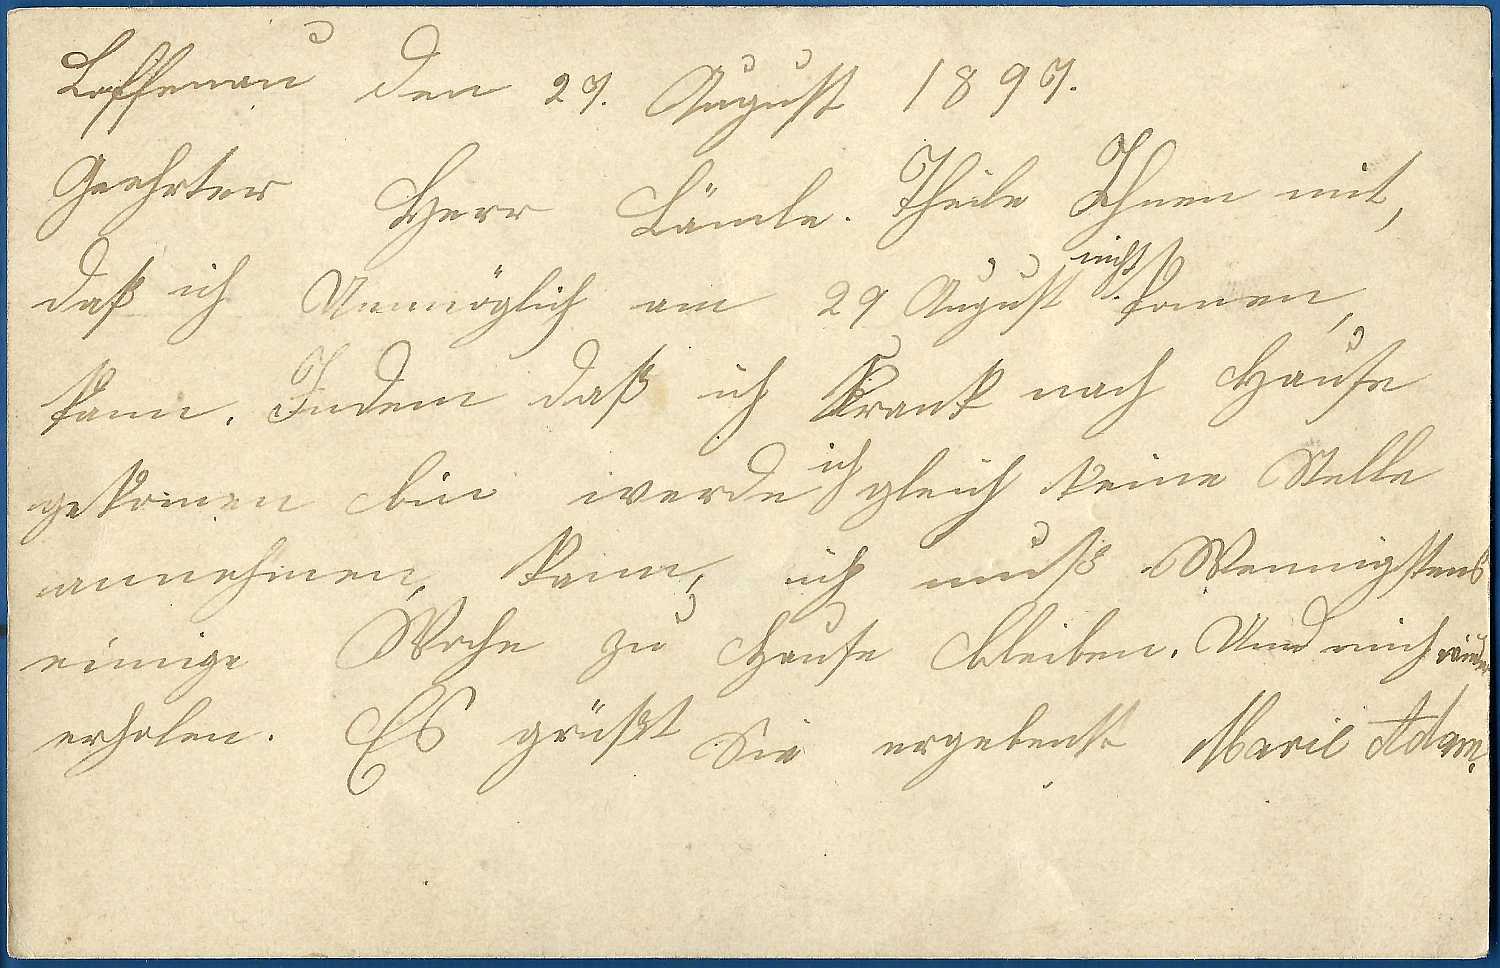 Loffenau den 27. August 1897.
Geehrter Herr Lämle. Theile Ihnen mit,
daß ich Unmöglich am 29 August nicht komen,
kann. Indem daß ich Krank nach Hause
gekomen bin werde ich gleich keine Stelle
annehmen, kann, ich muß Wennigstens
einige Woche zu Hause bleiben. Und mich wieder
erholen. Es grüßt Sie ergebenst Marie Adam.